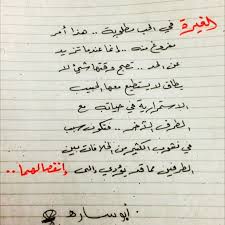 الغيرة في الحب مطلوبة .. هذا أمر
مفروغ منه .. إنما عندما تزيد
عن الحد .. تصبح وقتها شيئ لا
يطاق لا يستطيع معها الحبيب
الاستمرارية في حياته مع
الطرف الآخر .. فتكون سبب
في نشوب الكثير من الخلافات بين
الطرفين مما قد يؤدي إلى إنفصالهما ..
أبو سارة